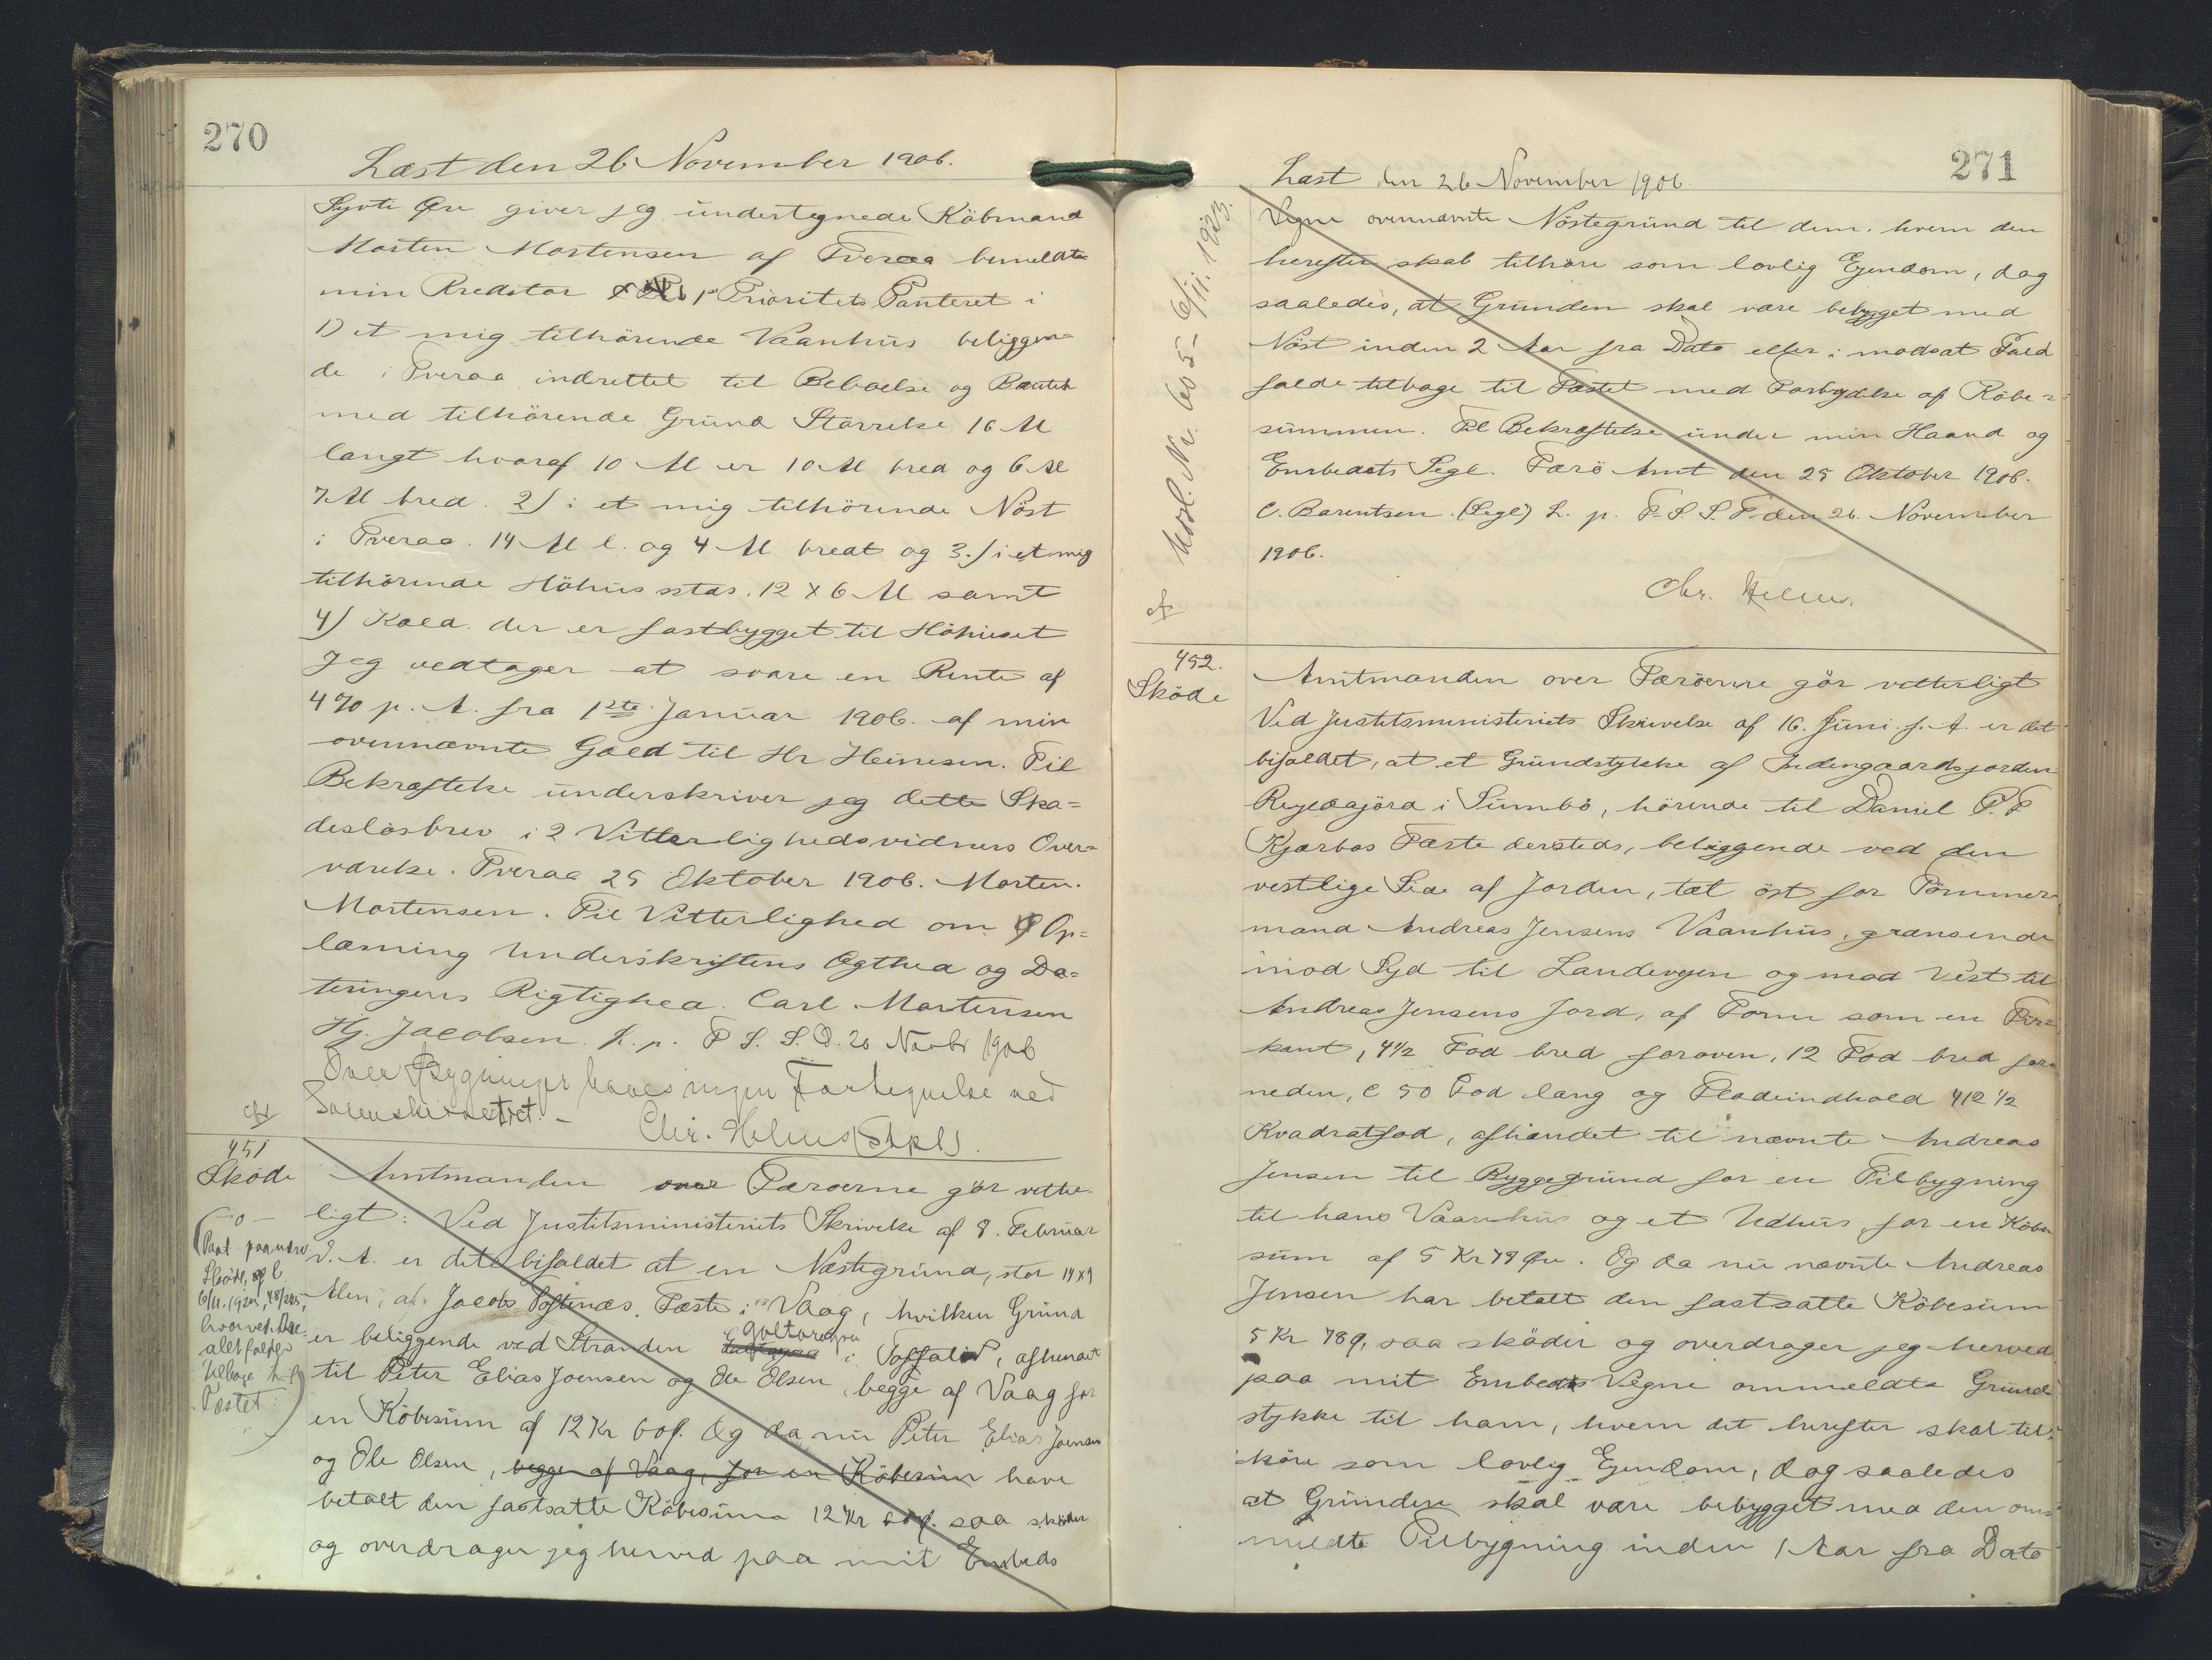 270
Læst den 26 November 1906.
Syvti Øre giver jeg undertegnede Köbmand
Morten Mortensen af Tveraa bemeldte
min Kreditor 1ste Prioritets Panteret i
1) et mig tilhörende Vaanhus beliggen-
de i Tveraa indrettet til Beboelse og Boutik
med tilhörende Grund Störrelse 16 Al
langt hvoraf 10 Al er 10 Al bred og 6 Al
7 Al bred. 2) i et mig tilhörende Nöst
i Tveraa. 14 Al l. og 4 Al bredt og 3.) i et mig
tilhörende Höhus stds. 12 x 6 Al samt
4) Kold. der er fastbygget til Höhuset
Jeg vedtager at svare en Rente af
4 % p. A. fra 1ste Januar 1906. af min
ovennævnte Gæld til Hr Heinesen. Til
Bekræftelse underskriver jeg dette Ska=
deslösbrev i 2 Vitterlighedsvidners Over=
værelse. Tveraa 25 Oktober 1906. Morten.
Mortensen. Til Vitterlighed om Op=
læsning Underskriftens Ægthed og Da=
teringens Rigtighed. Carl Mortensen
Hj. Jacobsen. L. p. F S. S. D. 26 Novbr 1906
Over Bygninger haves ingen Fortegnelse ved
Sorenskriveriet. -
Chr. Helms (Spl)
cf
451
Sköde
-o-
(Paat. paa udne
Sköde, af
6/11. 1923, 48/205,
hvorved Are-
alet faldt
tilbage til
Fæstet)
Amtmanden over Færøerne gör vitter-
ligt: Ved Justitsministeriets Skrivelse af 8. Februar
d. A. er det bifaldet at en Nöstegrund, stor 14 x 9
Alen, af Jacob Toftenæs Fæste i Vaag, hvilken Grund
er beliggende ved Stranden i , afhændet
til Peter Elias Joensen og Ole Olsen, begge af Vaag for
en Köbesum af 12 Kr 60 ø. Og da nu Peter Elias Joensen
og Ole Olsen, begge af Vaag, for en Köbesum have
betalt den fastsatte Köbesum 12 Kr 60 ø. saa sköder
og overdrager jeg herved paa mit Embeds
271
Læst den 26 November 1906.
Vegne ovennævnte Nöstegrund til dem. hvem den
herefter skal tilhöre som lovlig Ejendom, dog
saaledes, at Grunden skal være bebygget med
Nöst inden 2 Aar fra Dato eller i modsat Fald
falde tilbage til Fæstet med Fortabelse af Köbe=
summen. Til Bekræftelse under min Haand og
Embedets Segl. Færö Amt den 25 Oktober 1906.
C. Bærentsen. (Segl) L. p. F. S. S. T. den 26. November
1906.
Chr. Helms.
cf Udsl. Nr. 605 - 6/11. 1923.
452.
Sköde
Amtmanden over Færöerne gör vitterligt
Ved Justitsministeriets Skrivelse af 16. Juni. f. A. er det
bifaldet, at et Grundstykke af Indengaardsjorden
i Sumbö, hörende til Daniel P. F
Kjærbos Fæste dersteds, beliggende ved den
vestlige Side af Jorden, tæt öst for Tömmer-
mand Andreas Jensens Vaanhus, grænsende
imod Syd til Landevejen og mod Vest til
Andreas Jensens Jord, af Form som en Fir=
kant, 4½ Fod bred foroven, 12 Fod bred for-
neden, c 50 Fod lang og Fladeindhold 412 ½
Kvadratfod, afhændet til nævnte Andreas
Jensen til Byggegrund for en Tilbygning
til hans Vaanhus og et Udhus for en Köbe-
sum af 5 Kr 78 Øre. Og da nu nævnte Andreas
Jensen har betalt den fastsatte Köbesum
5 Kr 78 ø, saa sköder og overdrager jeg herved
paa mit Embeds Vegne ommeldte Grund
stykke til ham, hvem det herefter skal til=
höre som lovlig Ejendom, dog saaledes
at Grunden skal være bebygget med den om=
meldte Tilbygning inden 1 Aar fra Dato